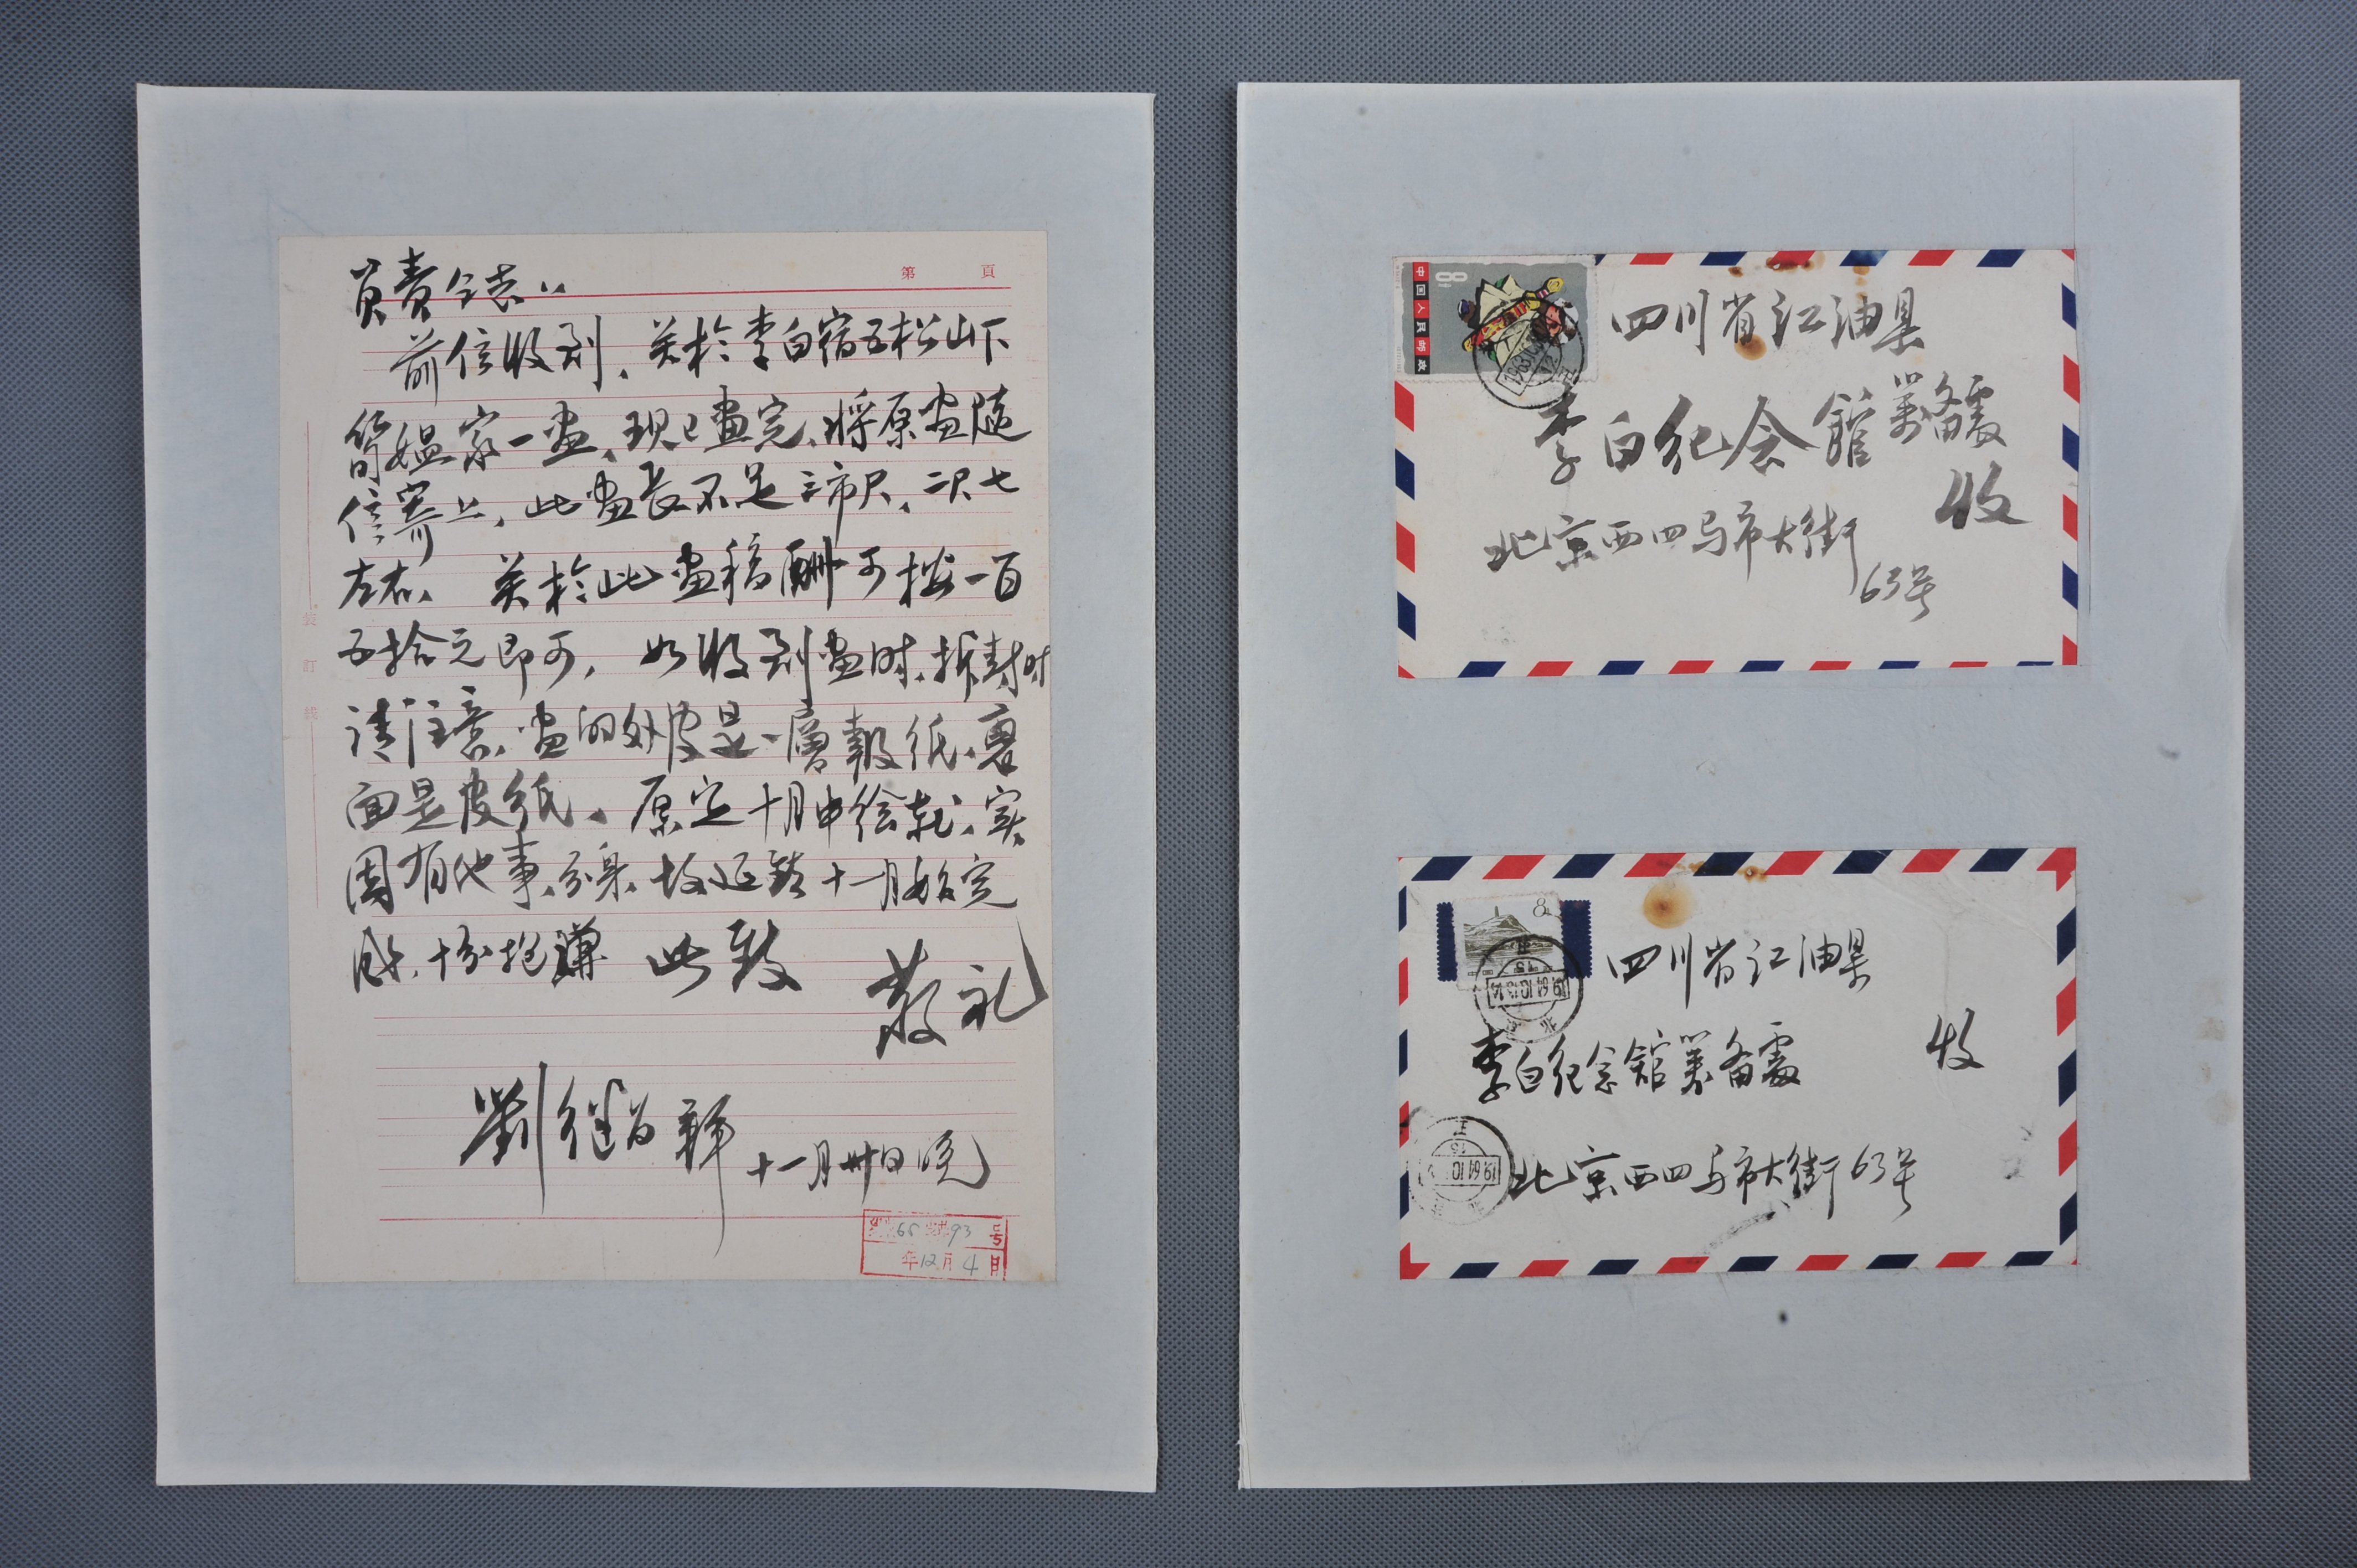 第 頁
負責仝志：
前信收到、关於李白宿五松山下
荀媪家一画、现已画完、将原画随
信寄上、此画長不足三市尺、二尺七
左右、 关於此画稿酬可按一百
五拾元即可， 如收到画时、拆封时
请注意、画的外皮是一層報纸、裏
面是皮纸、原定十月中绘就、实
因有他事分身、故延辞十一月始完
成、十分抱謙 此致
敬礼
劉继卣 十一月卅日
装
訂
线
65 93 号
年12月4日
中国人民邮政
8
四川省江油县
李白纪念館筹备處
收
北京西四马市大街
63号
8
四川省江油县
李白纪念館筹备處 收
北京西四马市大街63号